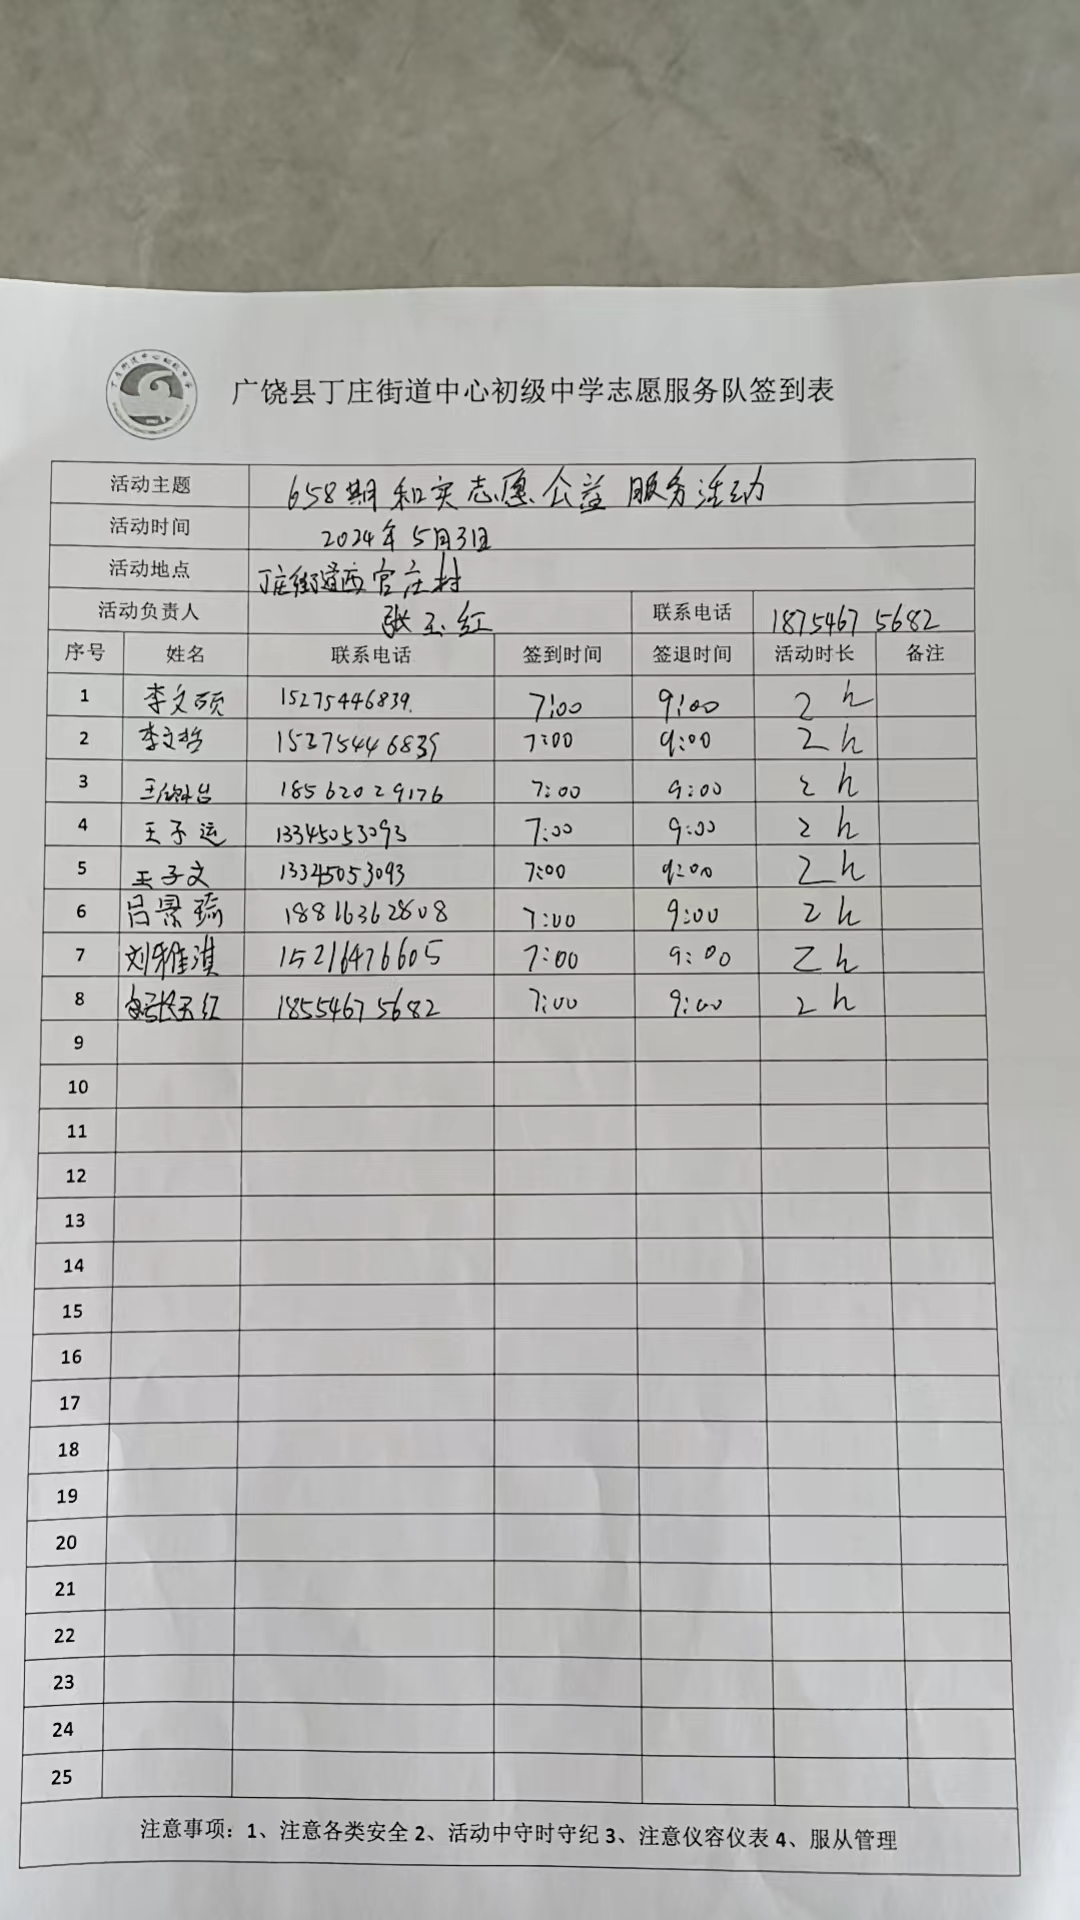 广饶县丁庄街道中心初级中学志愿服务队签到表
活动主题 658期和实志愿公益服务活动
活动时间 2024年5月3日
活动地点 丁庄街道西官庄村
活动负责人 张玉红 联系电话 18754675682
序号 姓名 联系电话 签到时间 签退时间 活动时长 备注
1 李文硕 15275446839 7:00 9:00 2h
2 李文哲 15275446839 7:00 9:00 2h
3 18562029176 7:00 9:00 2h
4 王子运 13345053093 7:00 9:00 2h
5 王子文 13345053093 7:00 9:00 2h
6 吕景瑜 18816362808 7:00 9:00 2h
7 刘雅淇 15216476605 7:00 9:00 2h
8 张玉红 18554675682 7:00 9:00 2h
9
10
11
12
13
14
15
16
17
18
19
20
21
22
23
24
25
注意事项：1、注意各类安全 2、活动中守时守纪 3、注意仪容仪表 4、服从管理